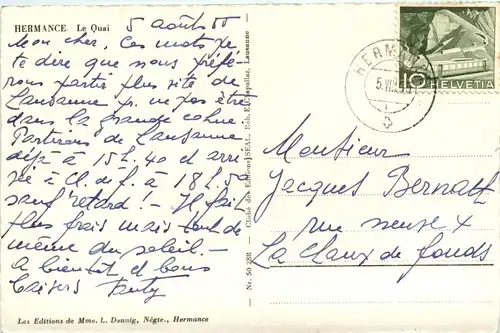 HERMANCE. Le Quai
5 août 50
Mon cher, Ces mots pr
te dire que nous préfé-
rons partir plus vite de
Lausanne pr. ne pas être
dans la grande cohue.
Partirons de Lausanne
déjà à 15 h. 40 et arri
vée à Ch. d. f. à 18 h. 50
sauf retard! - Il fait
plus frais mais tout de
même du soleil. -
A bientôt et bons
baisers
Les Editions de Mme. L. Dannig, Négte., Hermance
Nr. 50 288 Cliché des Editions SEAL, Rob. E. Chapallaz, Lausanne
HERMAN
10 HELVETIA
Monsieur
Jacques Bernath
rue neuve
La Chaux de fonds